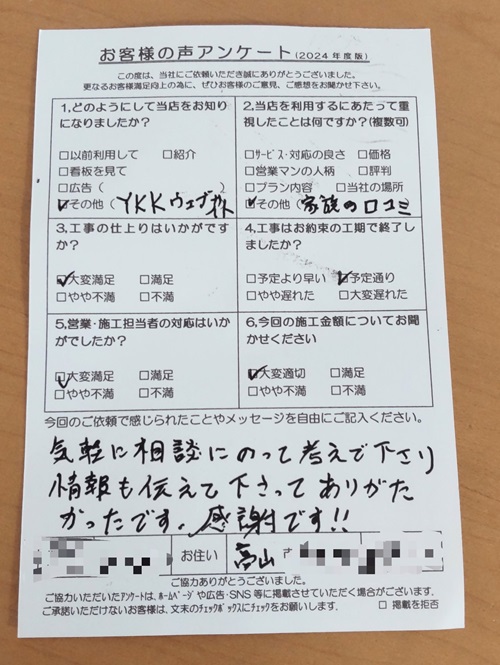 お客様の声アンケート(2024年度版)
この度は、当社にご依頼いただき誠にありがとうございました。
更なるお客様満足向上の為に、ぜひお客様のご意見、ご感想をお聞かせ下さい。
1,どのようにして当店をお知り
になりましたか?
□以前利用して □紹介
□看板を見て
□広告( )
☑その他(YKKウェブサイト
2,当店を利用するにあたって重
視したことは何ですか?(複数可)
□サービス・対応の良さ □価格
□営業マンの人柄 □評判
□プラン内容 □当社の場所
☑その他(家族の口コミ
3,工事の仕上りはいかがです
か?
☑大変満足 □満足
□やや不満 □不満
4,工事はお約束の工期で終了し
ましたか?
□予定より早い ☑予定通り
□やや遅れた □大変遅れた
5,営業・施工担当者の対応はいか
がでしたか?
☑大変満足 □満足
□やや不満 □不満
6,今回の施工金額についてお聞
かせください
☑大変適切 □満足
□やや不満 □不満
今回のご依頼で感じられたことやメッセージを自由にご記入ください。
気軽に相談にのって考えて下さり
情報も伝えて下さってありがた
かったです。感謝です!!
お住い 高山 市
ご協力ありがとうございました。
ご協力いただいたアンケートは、ホームページや広告・SNS等に掲載させていただく場合がございます。
ご承諾いただけないお客様は、文末のチェックボックスにチェックをお願いします。 □ 掲載を拒否